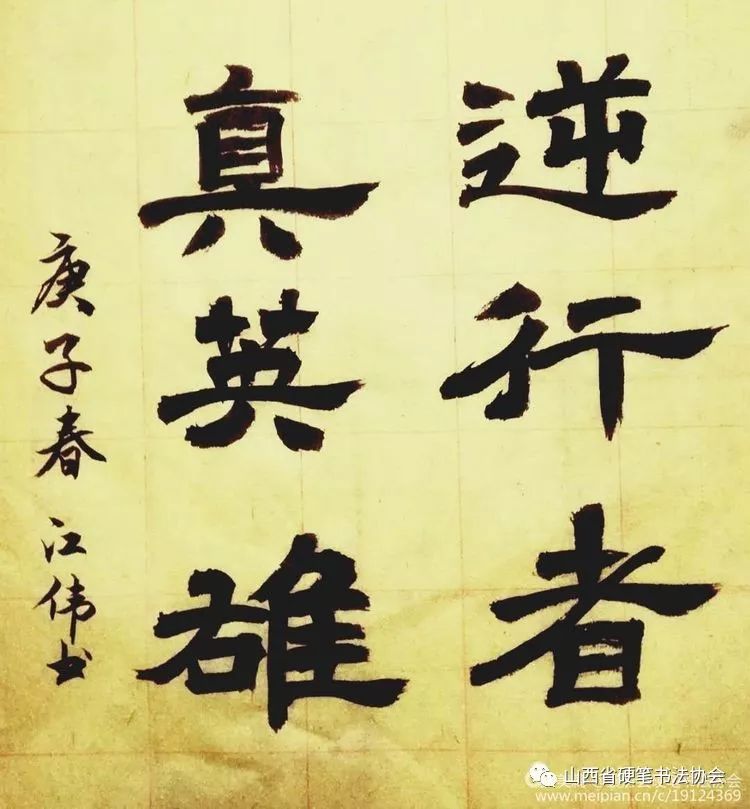 逆行者
真英雄
庚子春 江伟书
山西省硬笔书法协会
www.meipian.cn/c/19124369